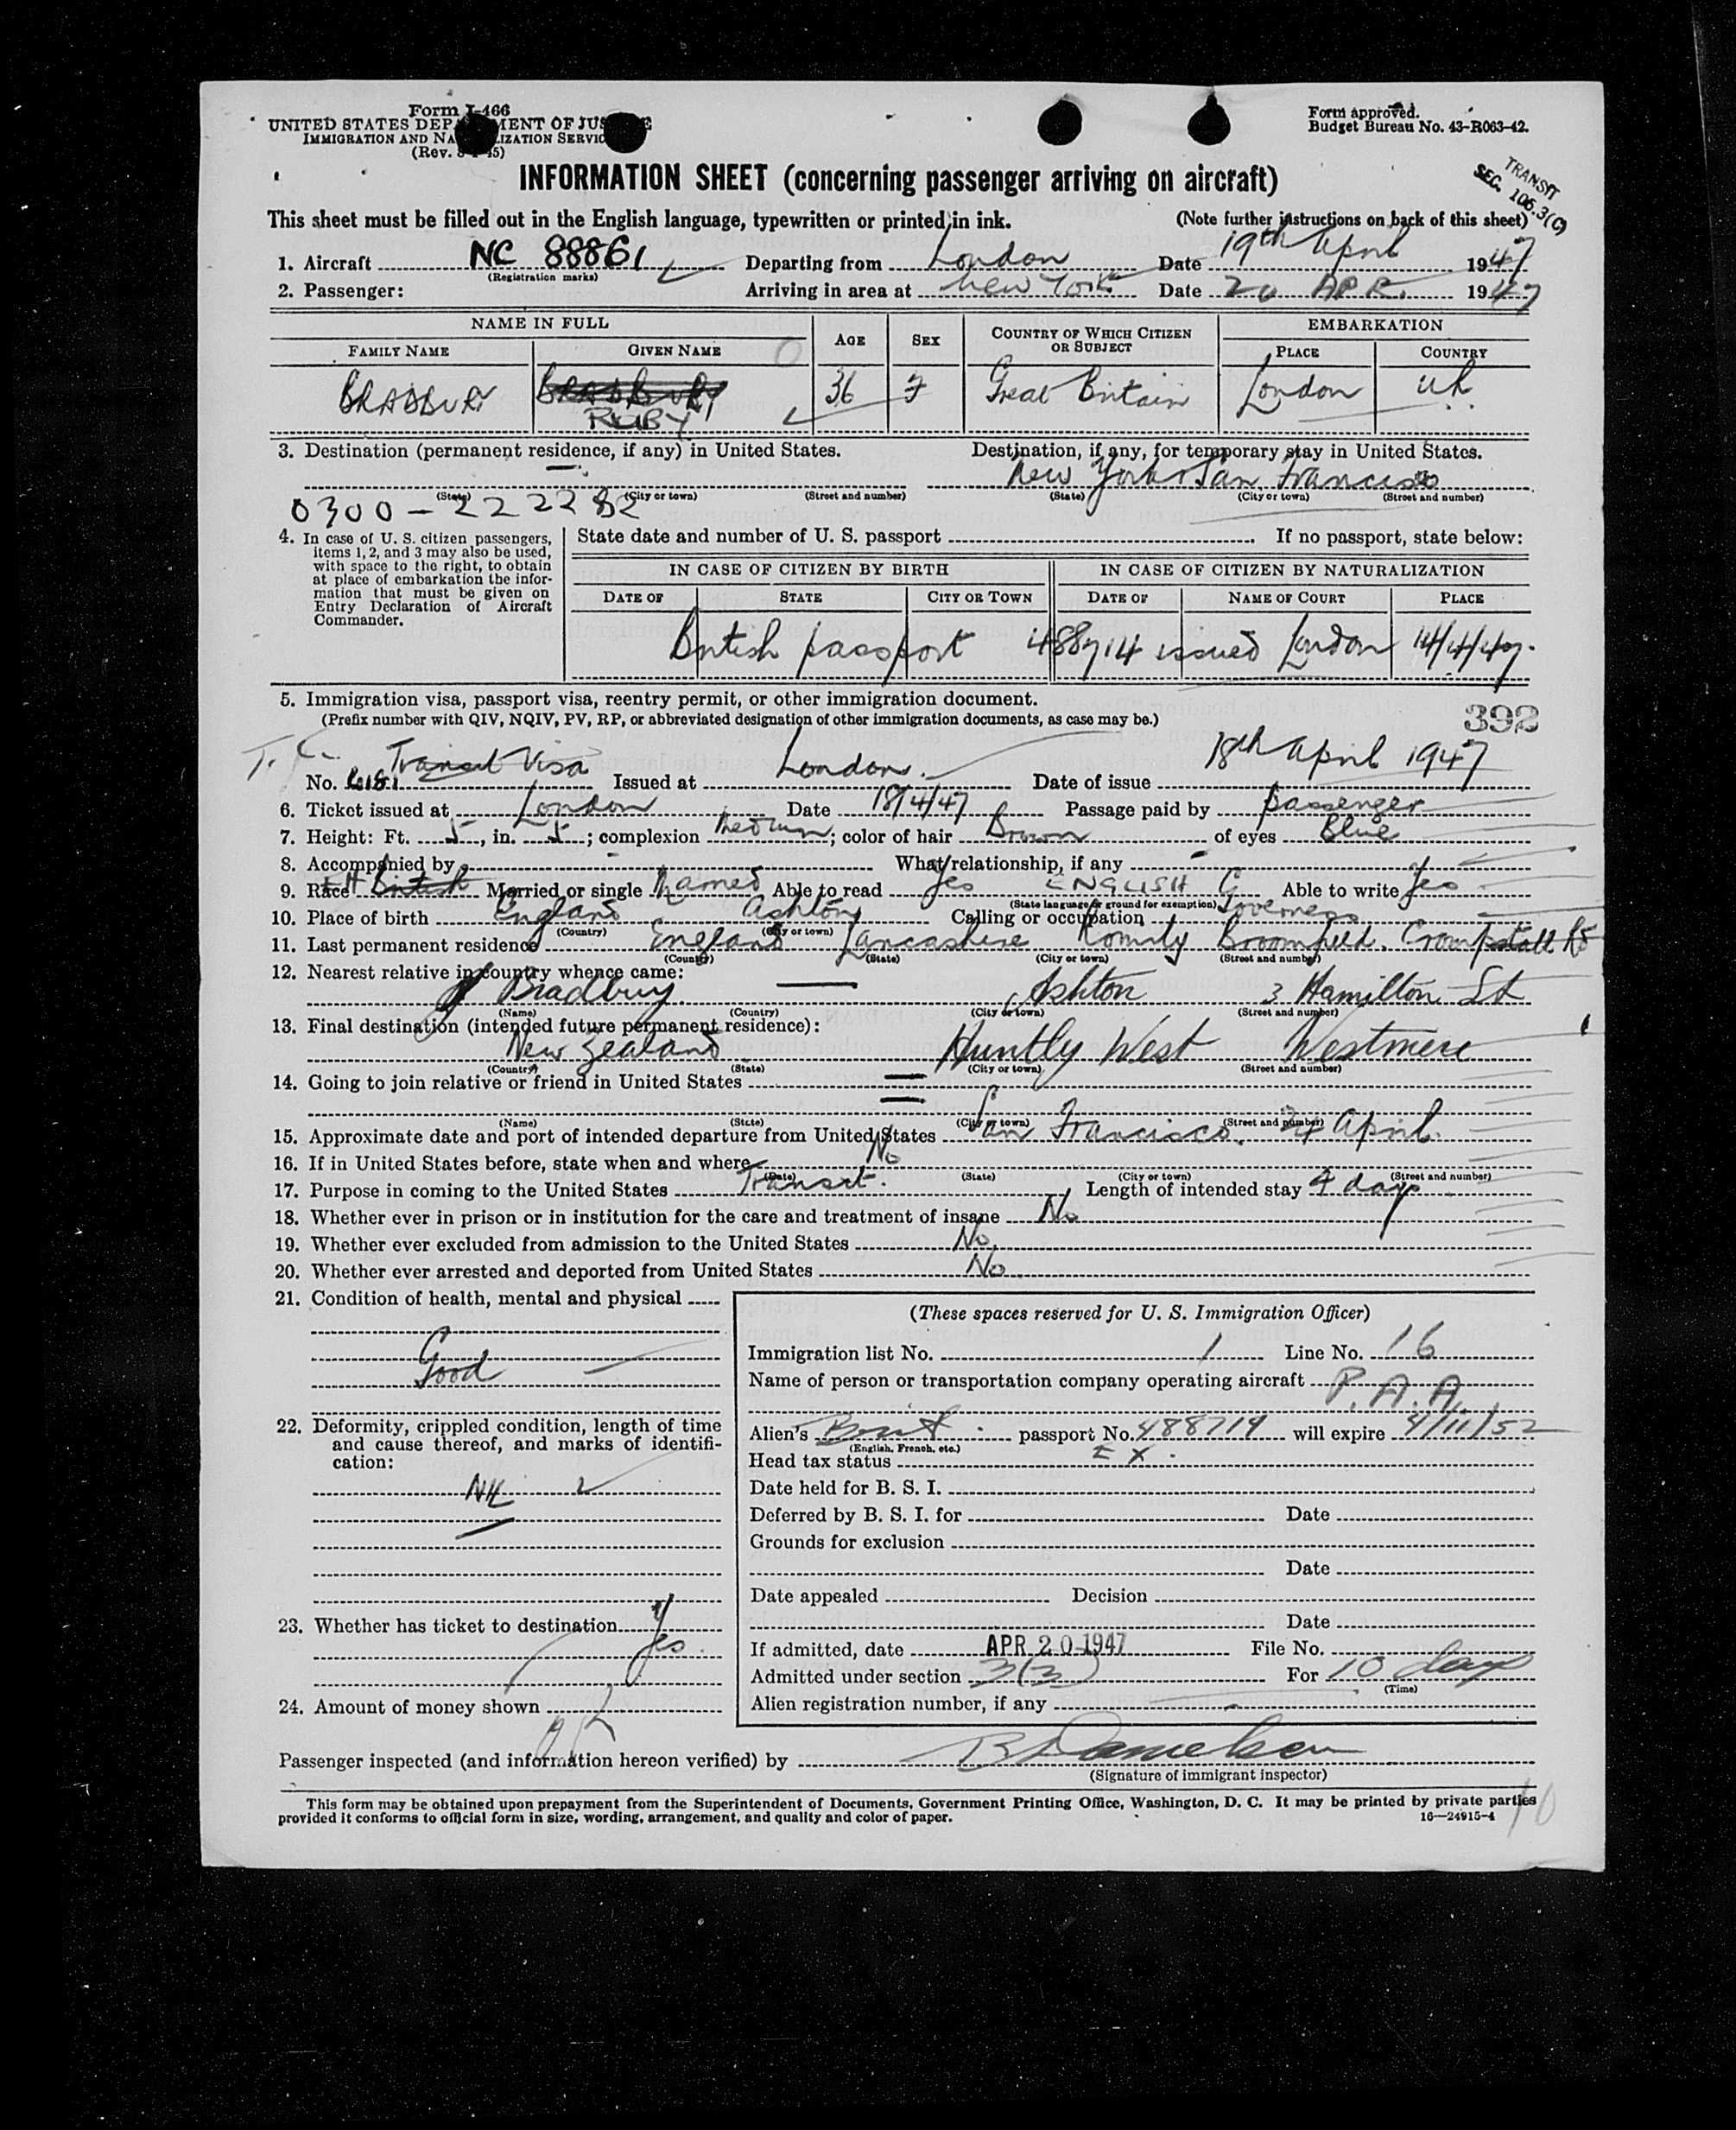 Form I-466
UNITED STATES DEPARTMENT OF JUSTICE
IMMIGRATION AND NATURALIZATION SERVICE
(Rev. 45)
Form approved.
Budget Bureau No. 43-R063-42.
TRANSIT
SEC. 106.3(C)
INFORMATION SHEET (concerning passenger arriving on aircraft)
This sheet must be filled out in the English language, typewritten or printed in ink. (Note further instructions on back of this sheet)
1. Aircraft NC 88861 Departing from London Date 19th April 1947
(Registration marks)
2. Passenger: Arriving in area at New York Date 20 APR. 1947
NAME IN FULL AGE SEX COUNTRY OF WHICH CITIZEN OR SUBJECT EMBARKATION
FAMILY NAME GIVEN NAME PLACE COUNTRY
BRADBURY BRADBURY 36 F Great Britain London UK
RUBY
3. Destination (permanent residence, if any) in United States. Destination, if any, for temporary stay in United States.
New York San Francisco
(State) (City or town) (Street and number) (State) (City or town) (Street and number)
0300-222282
4. In case of U. S. citizen passengers, items 1, 2, and 3 may also be used, with space to the right, to obtain at place of embarkation the information that must be given on Entry Declaration of Aircraft Commander.
State date and number of U. S. passport If no passport, state below:
IN CASE OF CITIZEN BY BIRTH IN CASE OF CITIZEN BY NATURALIZATION
DATE OF STATE CITY OR TOWN DATE OF NAME OF COURT PLACE
British passport 488714 issued London 14/4/47.
5. Immigration visa, passport visa, reentry permit, or other immigration document.
(Prefix number with QIV, NQIV, PV, RP, or abbreviated designation of other immigration documents, as case may be.)
392
T.C. Transit Visa
No. Issued at London. Date of issue 18th April 1947
6. Ticket issued at London Date 18/4/47 Passage paid by passenger
7. Height: Ft. 5, in. 5; complexion Medium; color of hair Brown of eyes Blue
8. Accompanied by - What relationship, if any -
9. Race British Married or single Married Able to read Yes ENGLISH Able to write Yes
(State language or ground for exemption)
10. Place of birth England Ashton Calling or occupation Governess
(Country) (City or town)
11. Last permanent residence England Lancashire Romily Broomfield. Crompstall Rd
(Country) (State) (City or town) (Street and number)
12. Nearest relative in country whence came:
Bradbury — Ashton 3 Hamilton St
(Name) (Country) (City or town) (Street and number)
13. Final destination (intended future permanent residence):
New Zealand Huntly West Westmere
(Country) (State) (City or town) (Street and number)
14. Going to join relative or friend in United States
(Name) (State) (City or town) (Street and number)
15. Approximate date and port of intended departure from United States San Francisco. 24 April.
16. If in United States before, state when and where No
(Date) (State) (City or town) (Street and number)
17. Purpose in coming to the United States Transit. Length of intended stay 4 days
18. Whether ever in prison or in institution for the care and treatment of insane No
19. Whether ever excluded from admission to the United States No
20. Whether ever arrested and deported from United States No
21. Condition of health, mental and physical
Good
22. Deformity, crippled condition, length of time and cause thereof, and marks of identification:
NIL
23. Whether has ticket to destination Yes
Yes.
24. Amount of money shown
(These spaces reserved for U. S. Immigration Officer)
Immigration list No. 1 Line No. 16
Name of person or transportation company operating aircraft P.A.A.
Alien's Brit passport No. 488719 will expire 4/11/52
(English, French, etc.)
Head tax status EX.
Date held for B. S. I.
Deferred by B. S. I. for Date
Grounds for exclusion
Date
Date appealed Decision
Date
If admitted, date APR 20 1947 File No.
Admitted under section 3(3) For 10 days
(Time)
Alien registration number, if any -
Passenger inspected (and information hereon verified) by B Danielsen
(Signature of immigrant inspector)
This form may be obtained upon prepayment from the Superintendent of Documents, Government Printing Office, Washington, D. C. It may be printed by private parties
provided it conforms to official form in size, wording, arrangement, and quality and color of paper. 16—24915-4
10